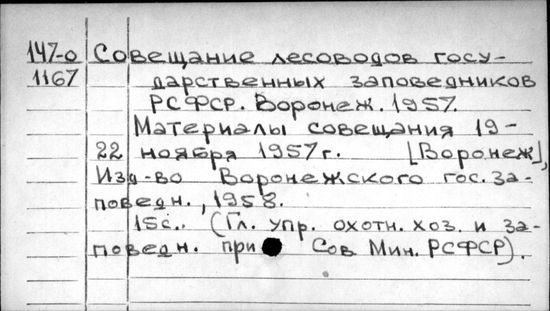 147-0 Совещание лесоводов госу-
1167 дарственных заповедников
РСФСР. Воронеж. 1957.
Материалы совещания 19-
22 ноября 1957г. [Воронеж],
Изд-во Воронежского гос. за-
поведн., 1958.
15с. (Гл. упр. охотн. хоз. и за-
поведн. при Сов Мин. РСФСР).